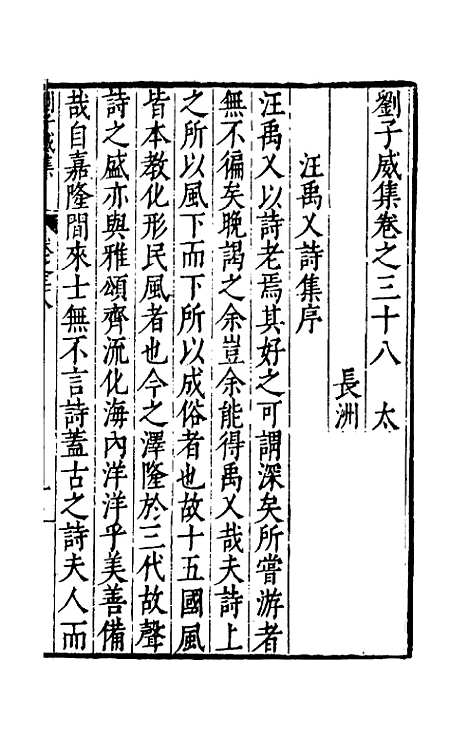 劉子威集卷之三十八　太
長洲
汪禹乂詩集序
汪禹乂以詩老焉其好之可謂深矣所嘗游者
無不徧矣晚謁之余豈余能得禹乂哉夫詩上
之所以風下而下所以成俗者也故十五國風
皆本教化形民風者也今之澤隆於三代故聲
詩之盛亦與雅頌齊流化海內洋洋乎美善備
哉自嘉隆間來士無不言詩蓋古之詩夫人而
劉子威集